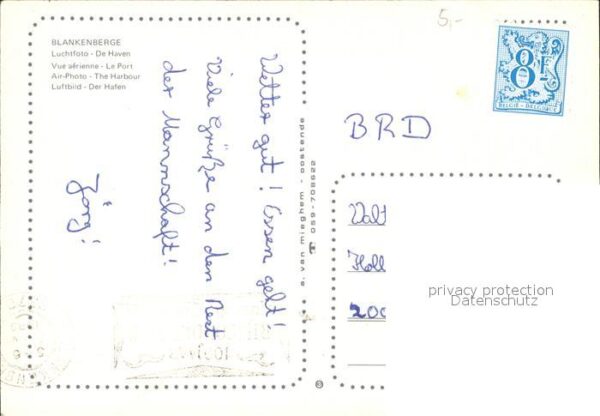 BLANKENBERGE
Luchtfoto - De Haven
Vue aérienne - Le Port
Air-Photo - The Harbour
Luftbild - Der Hafen
Wetter gut! Essen geht!
Viele Grüße an den Rest
der Mannschaft!
Jörg!
e. van mieghem - oostende
059-708622
5,-
8F
BELGIË - BELGIQUE
BRD
Valt
Holl
200
privacy protection
Datenschutz